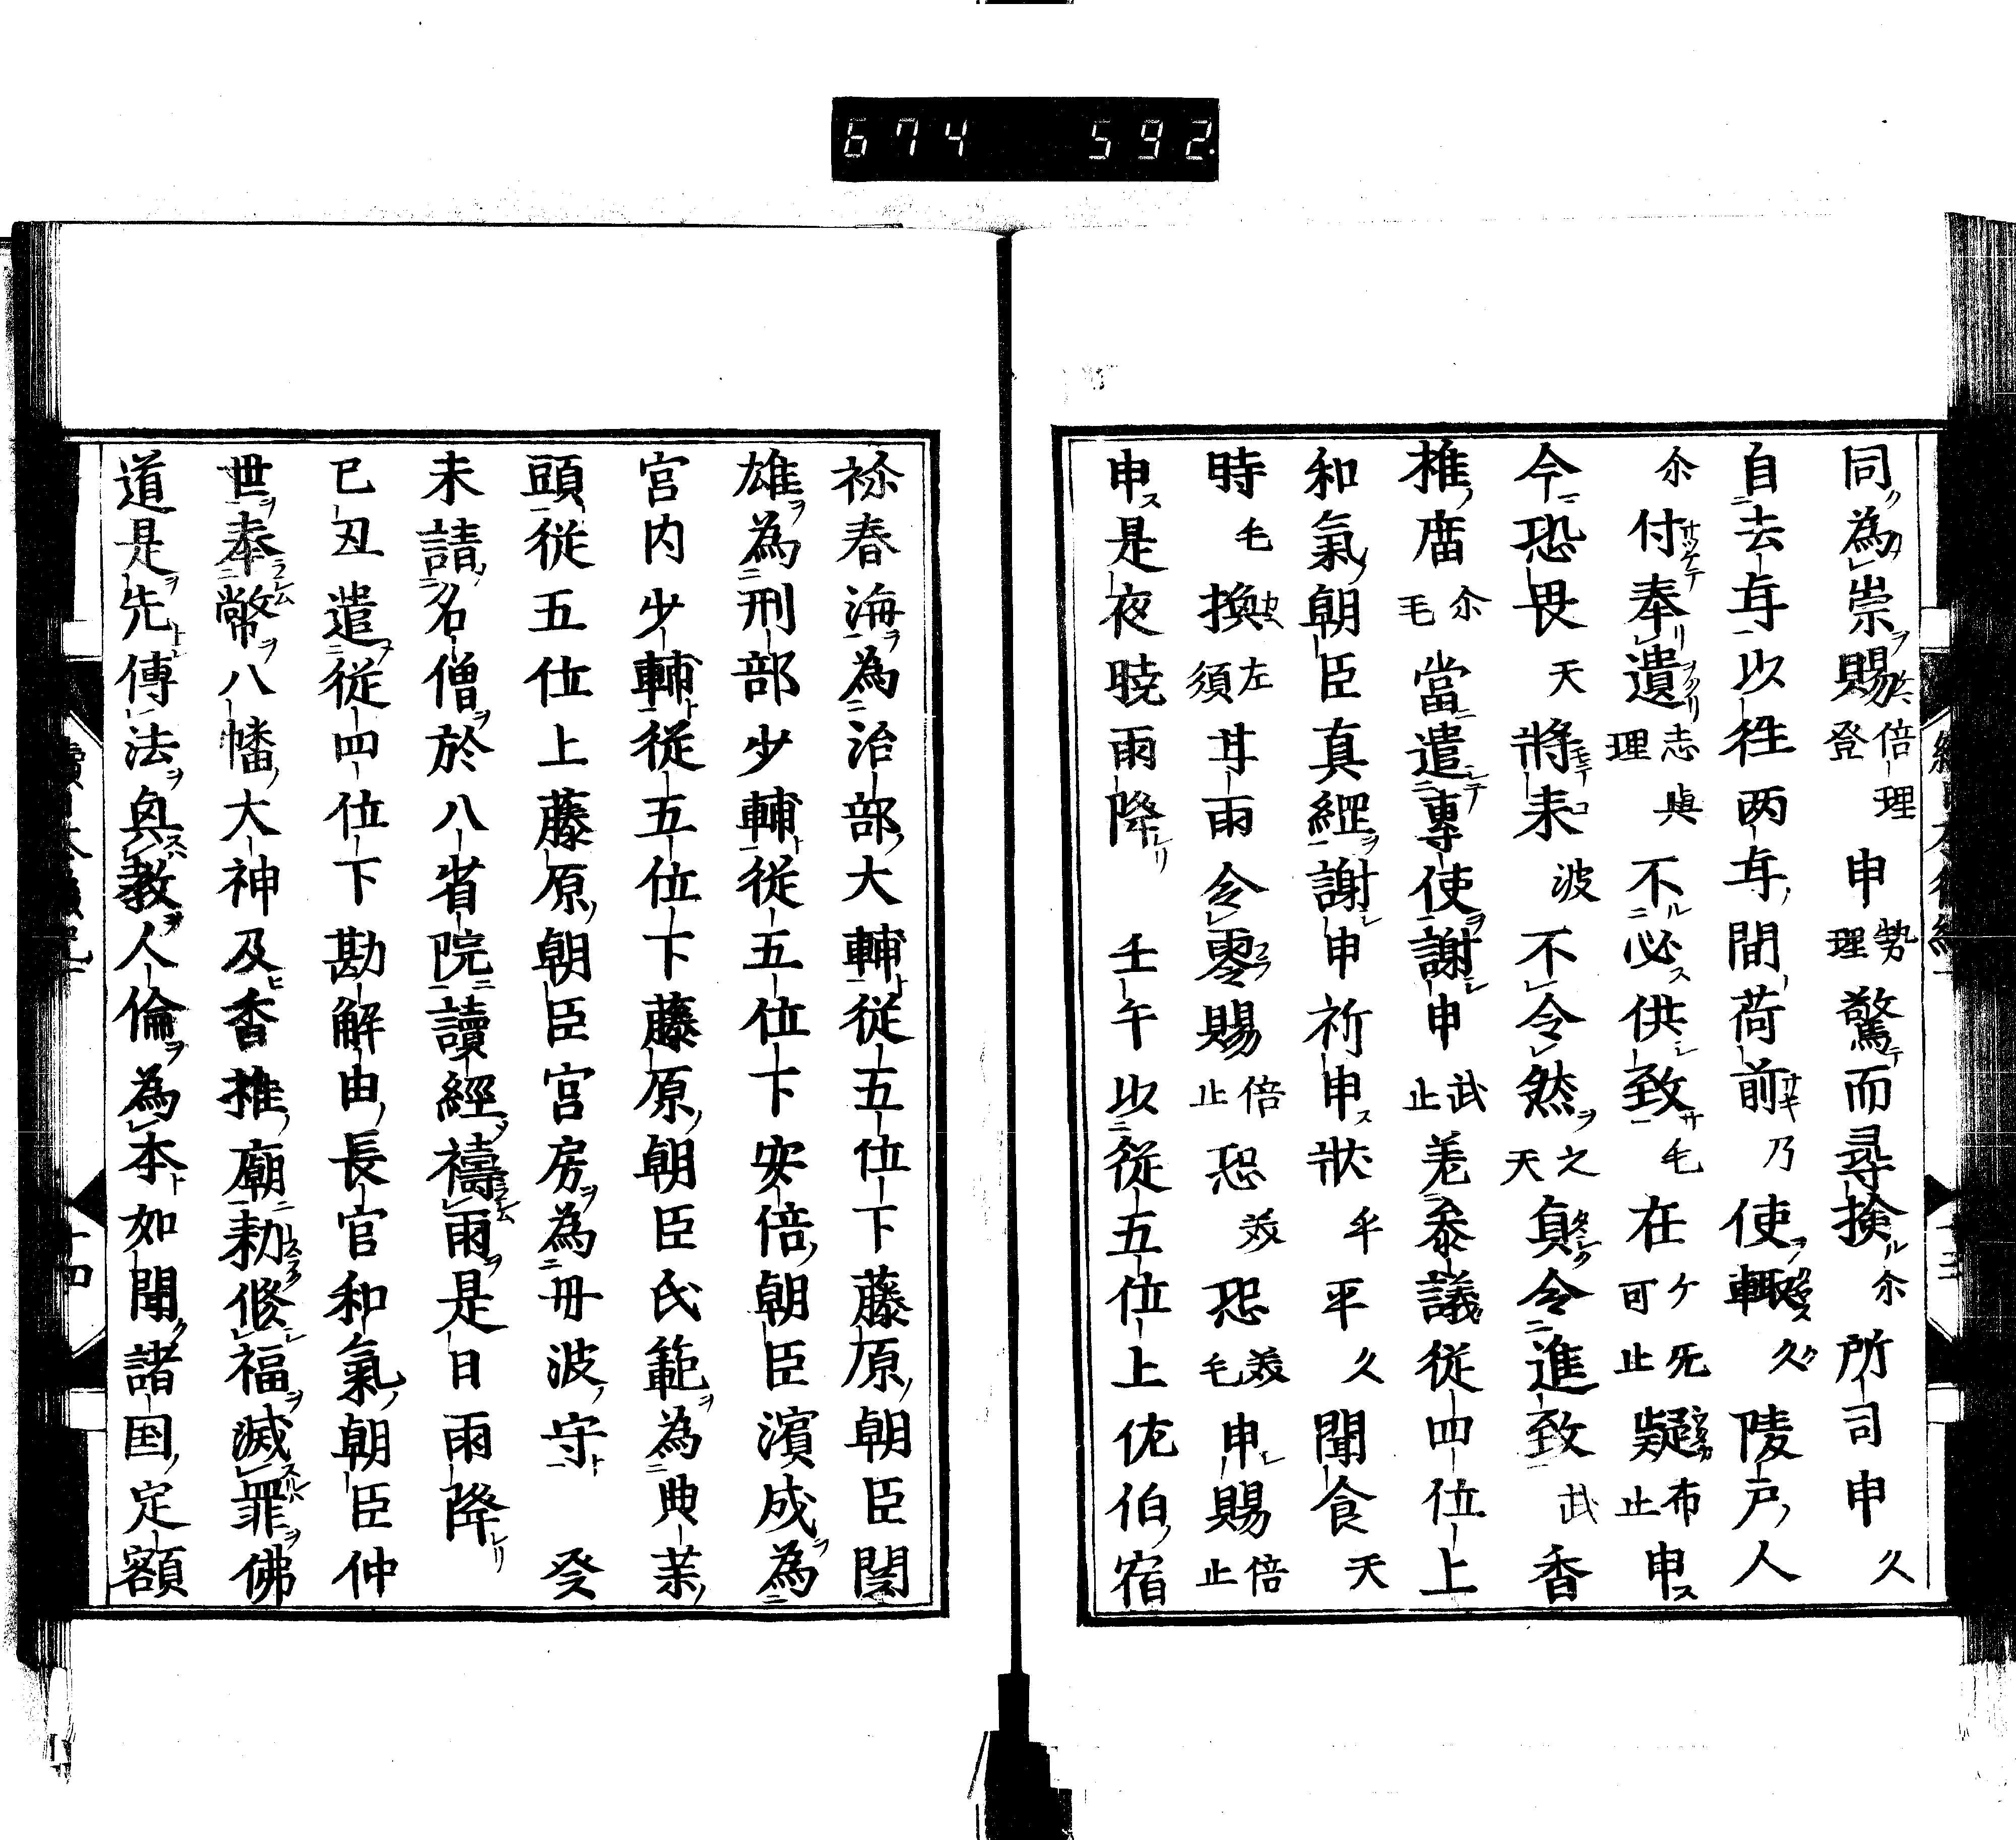 674 592.
同為祟賜倍理登申勢理驚而尋搩尓所司申久
自去年以徃两年間荷前乃使輙久陵戸人
尓付奉遺志理與不必供致毛在ケ可死止疑布止申
今恐畏天將来波不令然之天負令進致武香
推庿尓毛當遣專使謝申武止差叅議従四位上
和氣朝臣真綱謝申祈申狀乎平久聞食天
時毛換左須耳雨令零賜倍止恐美恐美毛申賜倍止
申是夜暁雨降 壬午以従五位上佐伯宿
祢春海為治部大輔従五位下藤原朝臣関
雄為刑部少輔従五位下安倍朝臣濱成為
宮内少輔従五位下藤原朝臣氏範為典薬
頭従五位上藤原朝臣宮房為丹波守 癸
未請名僧於八省院讀經禱雨是日雨降
己丑遣従四位下勘解由長官和氣朝臣仲
世奉幣八幡大神及香推廟勅修福滅罪佛
道是先傳法興教人倫為本如聞諸国定額